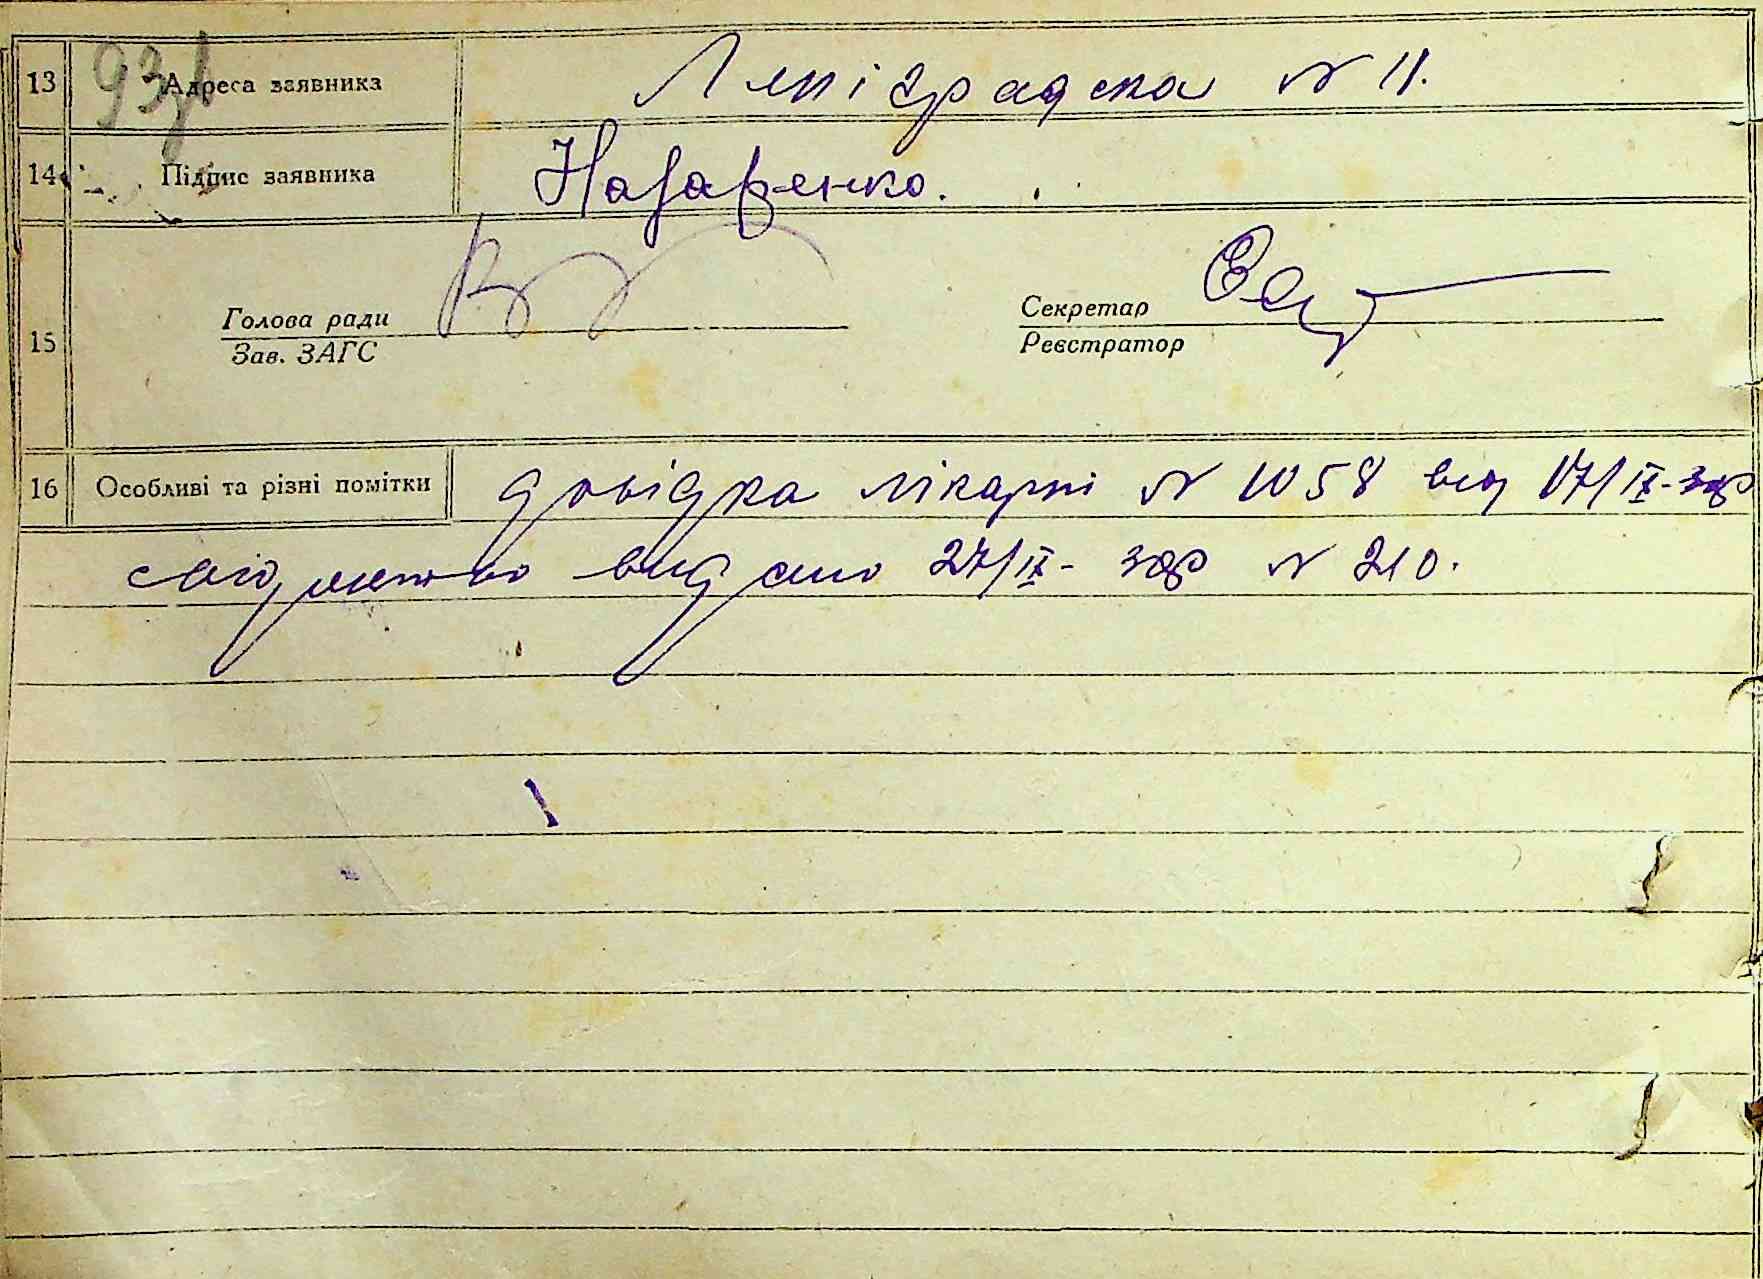 13 93 Адреса заявника Ленінградська № 11.
14 Підпис заявника Назаренко.
15 Голова ради
Зав. ЗАГС
Секретар
Реєстратор
16 Особливі та різні помітки довідка лікарні № 1058 від 17/IX-38р
свідоцтво видано 27/IX- 38р № 210.